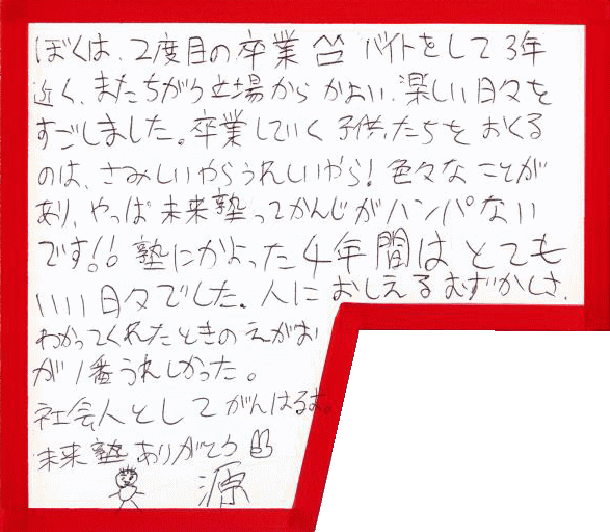 ぼくは、2度目の卒業 ^^ バイトをして3年
近く、またちがう立場から かよい、楽しい日々を
すごしました。卒業していく子供たちを おくる
のは、さみしいやらうれしいやら!色々な ことが
あり、やっぱ未来塾ってかんじがハンパない
です!!塾にかよった4年間は とても
いい日々でした。人に おしえる むずかしさ、
わかってくれたときの えがお
が1番うれしかった。
社会人として がんばるぉ。
未来塾ありがとう
源